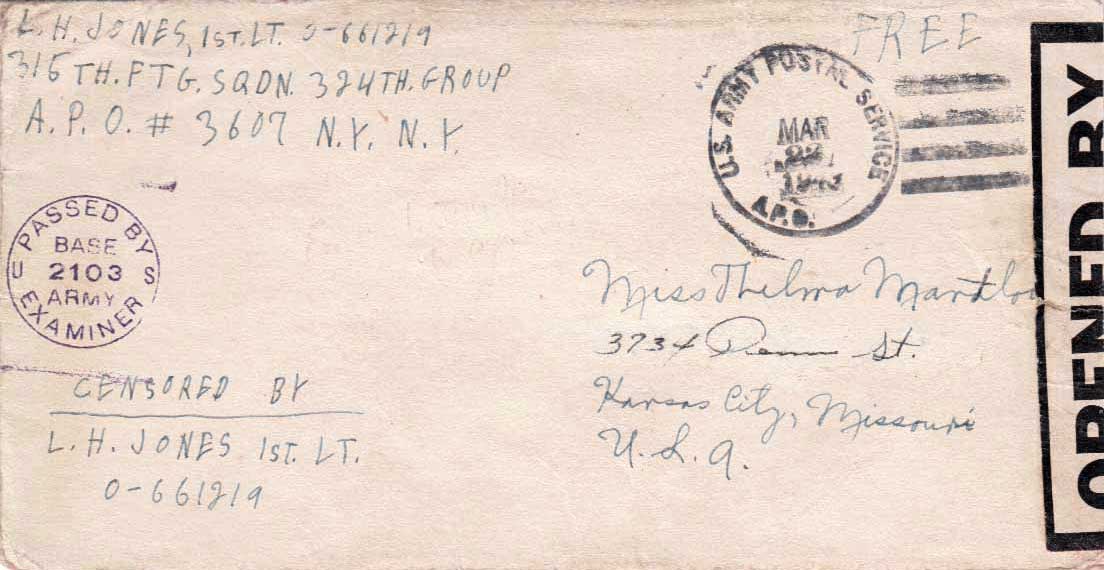 L. H. JONES, 1ST. LT. O-661219
315TH. FTG. SQDN. 324TH. GROUP
A. P. O. # 3607 N.Y. N.Y.
FREE
U.S. ARMY POSTAL SERVICE
MAR
22
1943
A.P.O.
PASSED BY
BASE
U 2103 S
ARMY
EXAMINER
Miss Thelma
3734 Penn St.
Kansas City, Missouri
U. S. A.
CENSORED BY
L. H. JONES 1ST. LT.
O-661219
OPENED BY